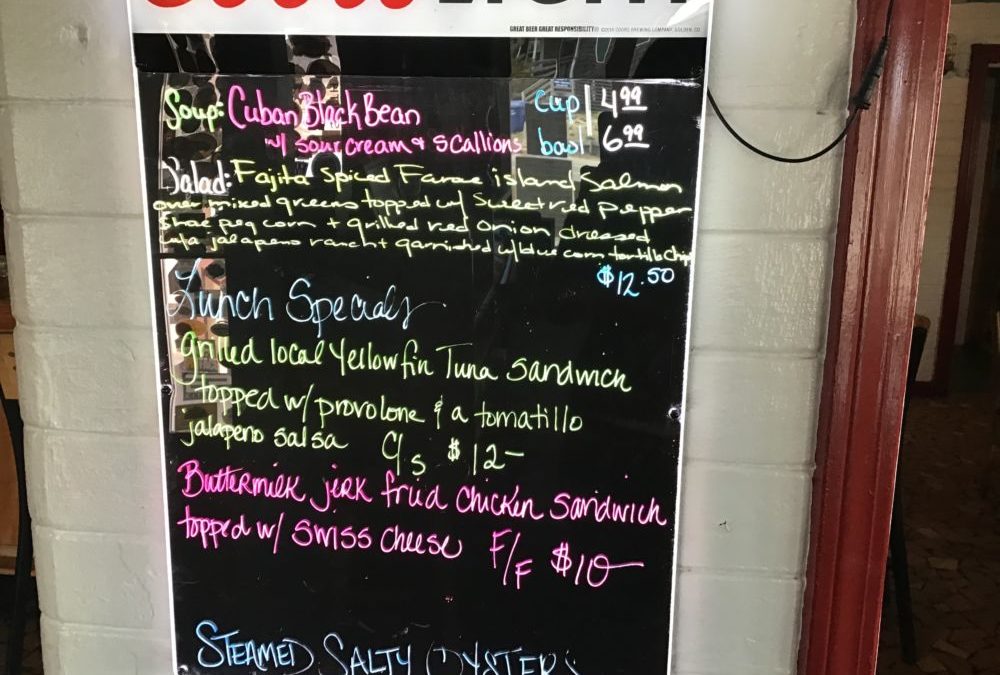 Coors LIGHT
GREAT BEER GREAT RESPONSIBILITY® ©2014 COORS BREWING COMPANY, GOLDEN, CO
Soup: Cuban Black Bean cup 4.99
w/ sour cream & scallions bowl 6.99
Salad: Fajita Spiced Faroe island Salmon
over mixed greens topped w/ Sweet red pepper
Shoe peg corn + grilled red onion dressed
w/a jalapeno ranch + garnished w/blue corn tortilla chips
$12.50
Lunch Specials
grilled local Yellowfin Tuna sandwich
topped w/ provolone & a tomatillo
jalapeno salsa C/s $12-
Buttermilk jerk fried chicken sandwich
topped w/ swiss cheese F/F $10-
STEAMED SALTY OYSTERS